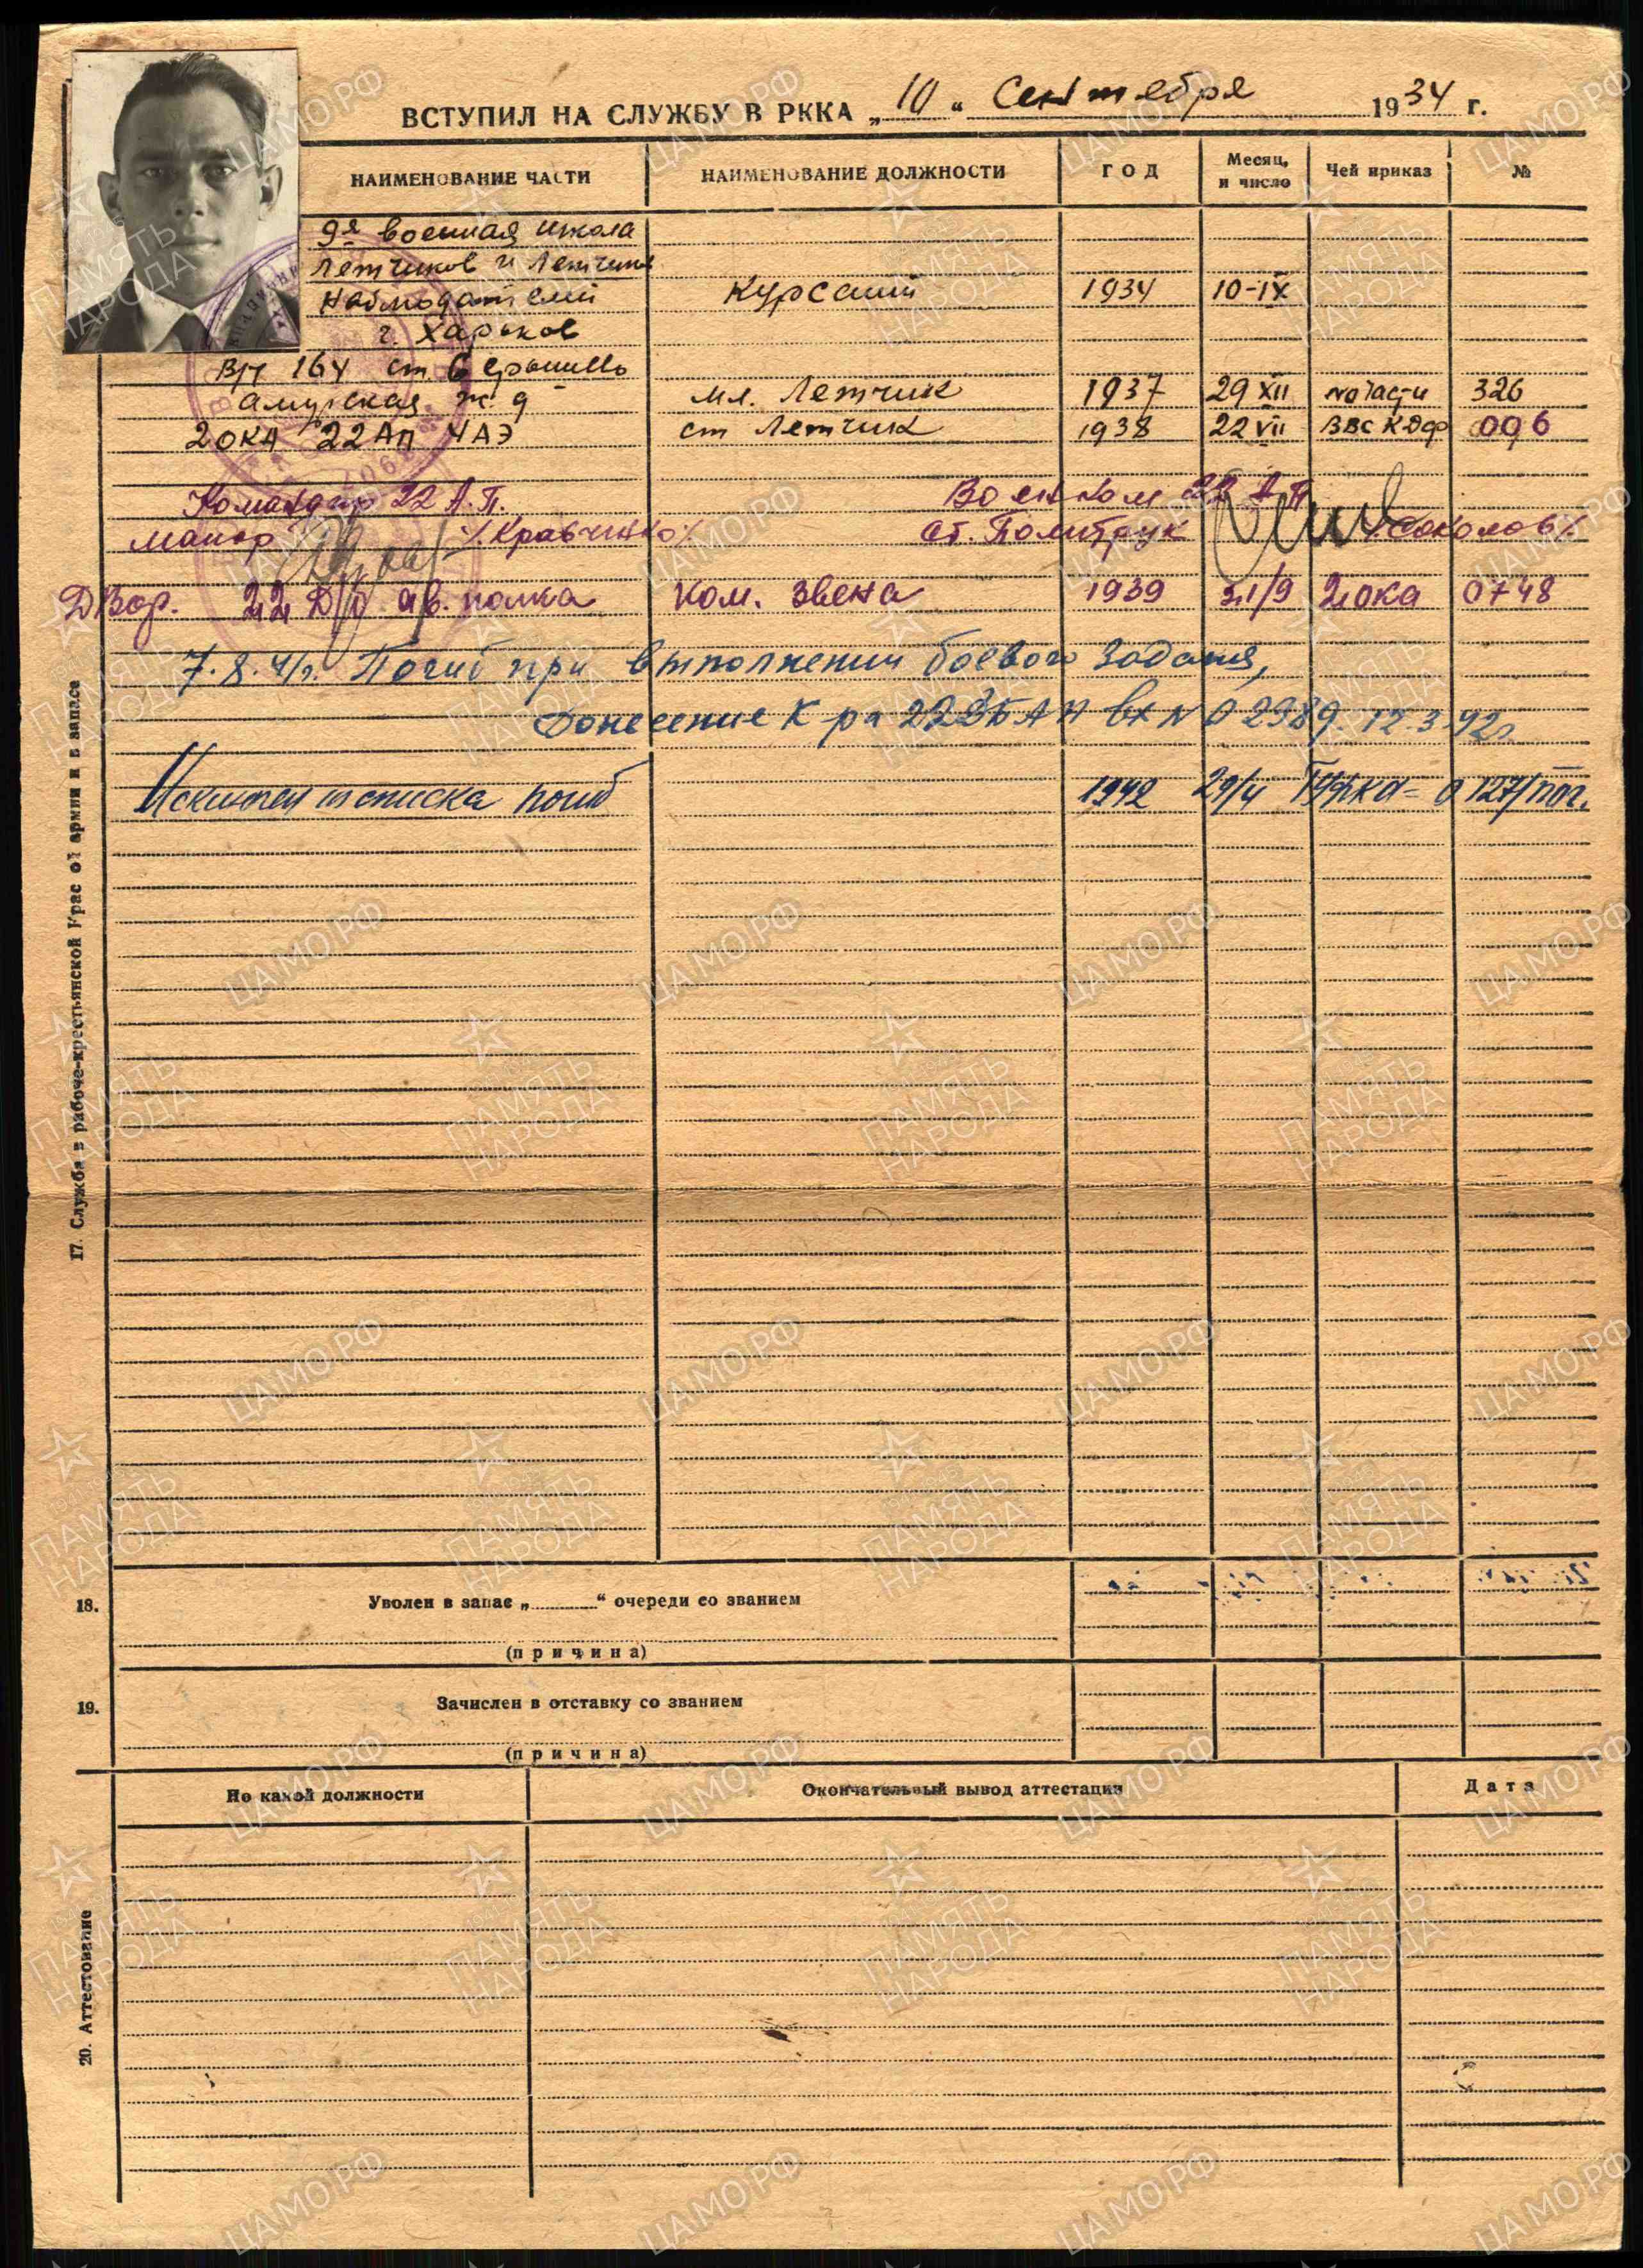 ВСТУПИЛ НА СЛУЖБУ В РККА „ 10 “ Сентября 1934 г.
НАИМЕНОВАНИЕ ЧАСТИ НАИМЕНОВАНИЕ ДОЛЖНОСТИ ГОД Месяц, и число Чей приказ №
9я военная школа
летчиков и летчиков
наблюдателей Курсант 1934 10-IX
г. Харьков
в/ч 164 ст. Серышево
Амурская ж.д мл. Летчик 1937 29 XII по части 326
2 ОКА 22 АП 4 АЭ ст Летчик 1938 22 VII ВВС КДФ 096
Командир 22 А.П. Военком 22 А П
майор /Кравченко/ ст. Политрук /Соколов/
22 ав. полка Ком. звена 1939 31/9 2 ока 0748
7.8.41г. Погиб при выполнении боевого задания,
донесение К ра 22 вх № 02989. 12.3.42г
Исключен из списка погиб 1942 29/4 0127/пог.
17. Служба в рабоче-крестьянской Крас ой армии и в запасе
18. Уволен в запас „ “ очереди со званием
(причина)
19. Зачислен в отставку со званием
(причина)
По какой должности Окончательный вывод аттестации Дата
20. Аттестование
ЦАМО.РФ
ПАМЯТЬ НАРОДА